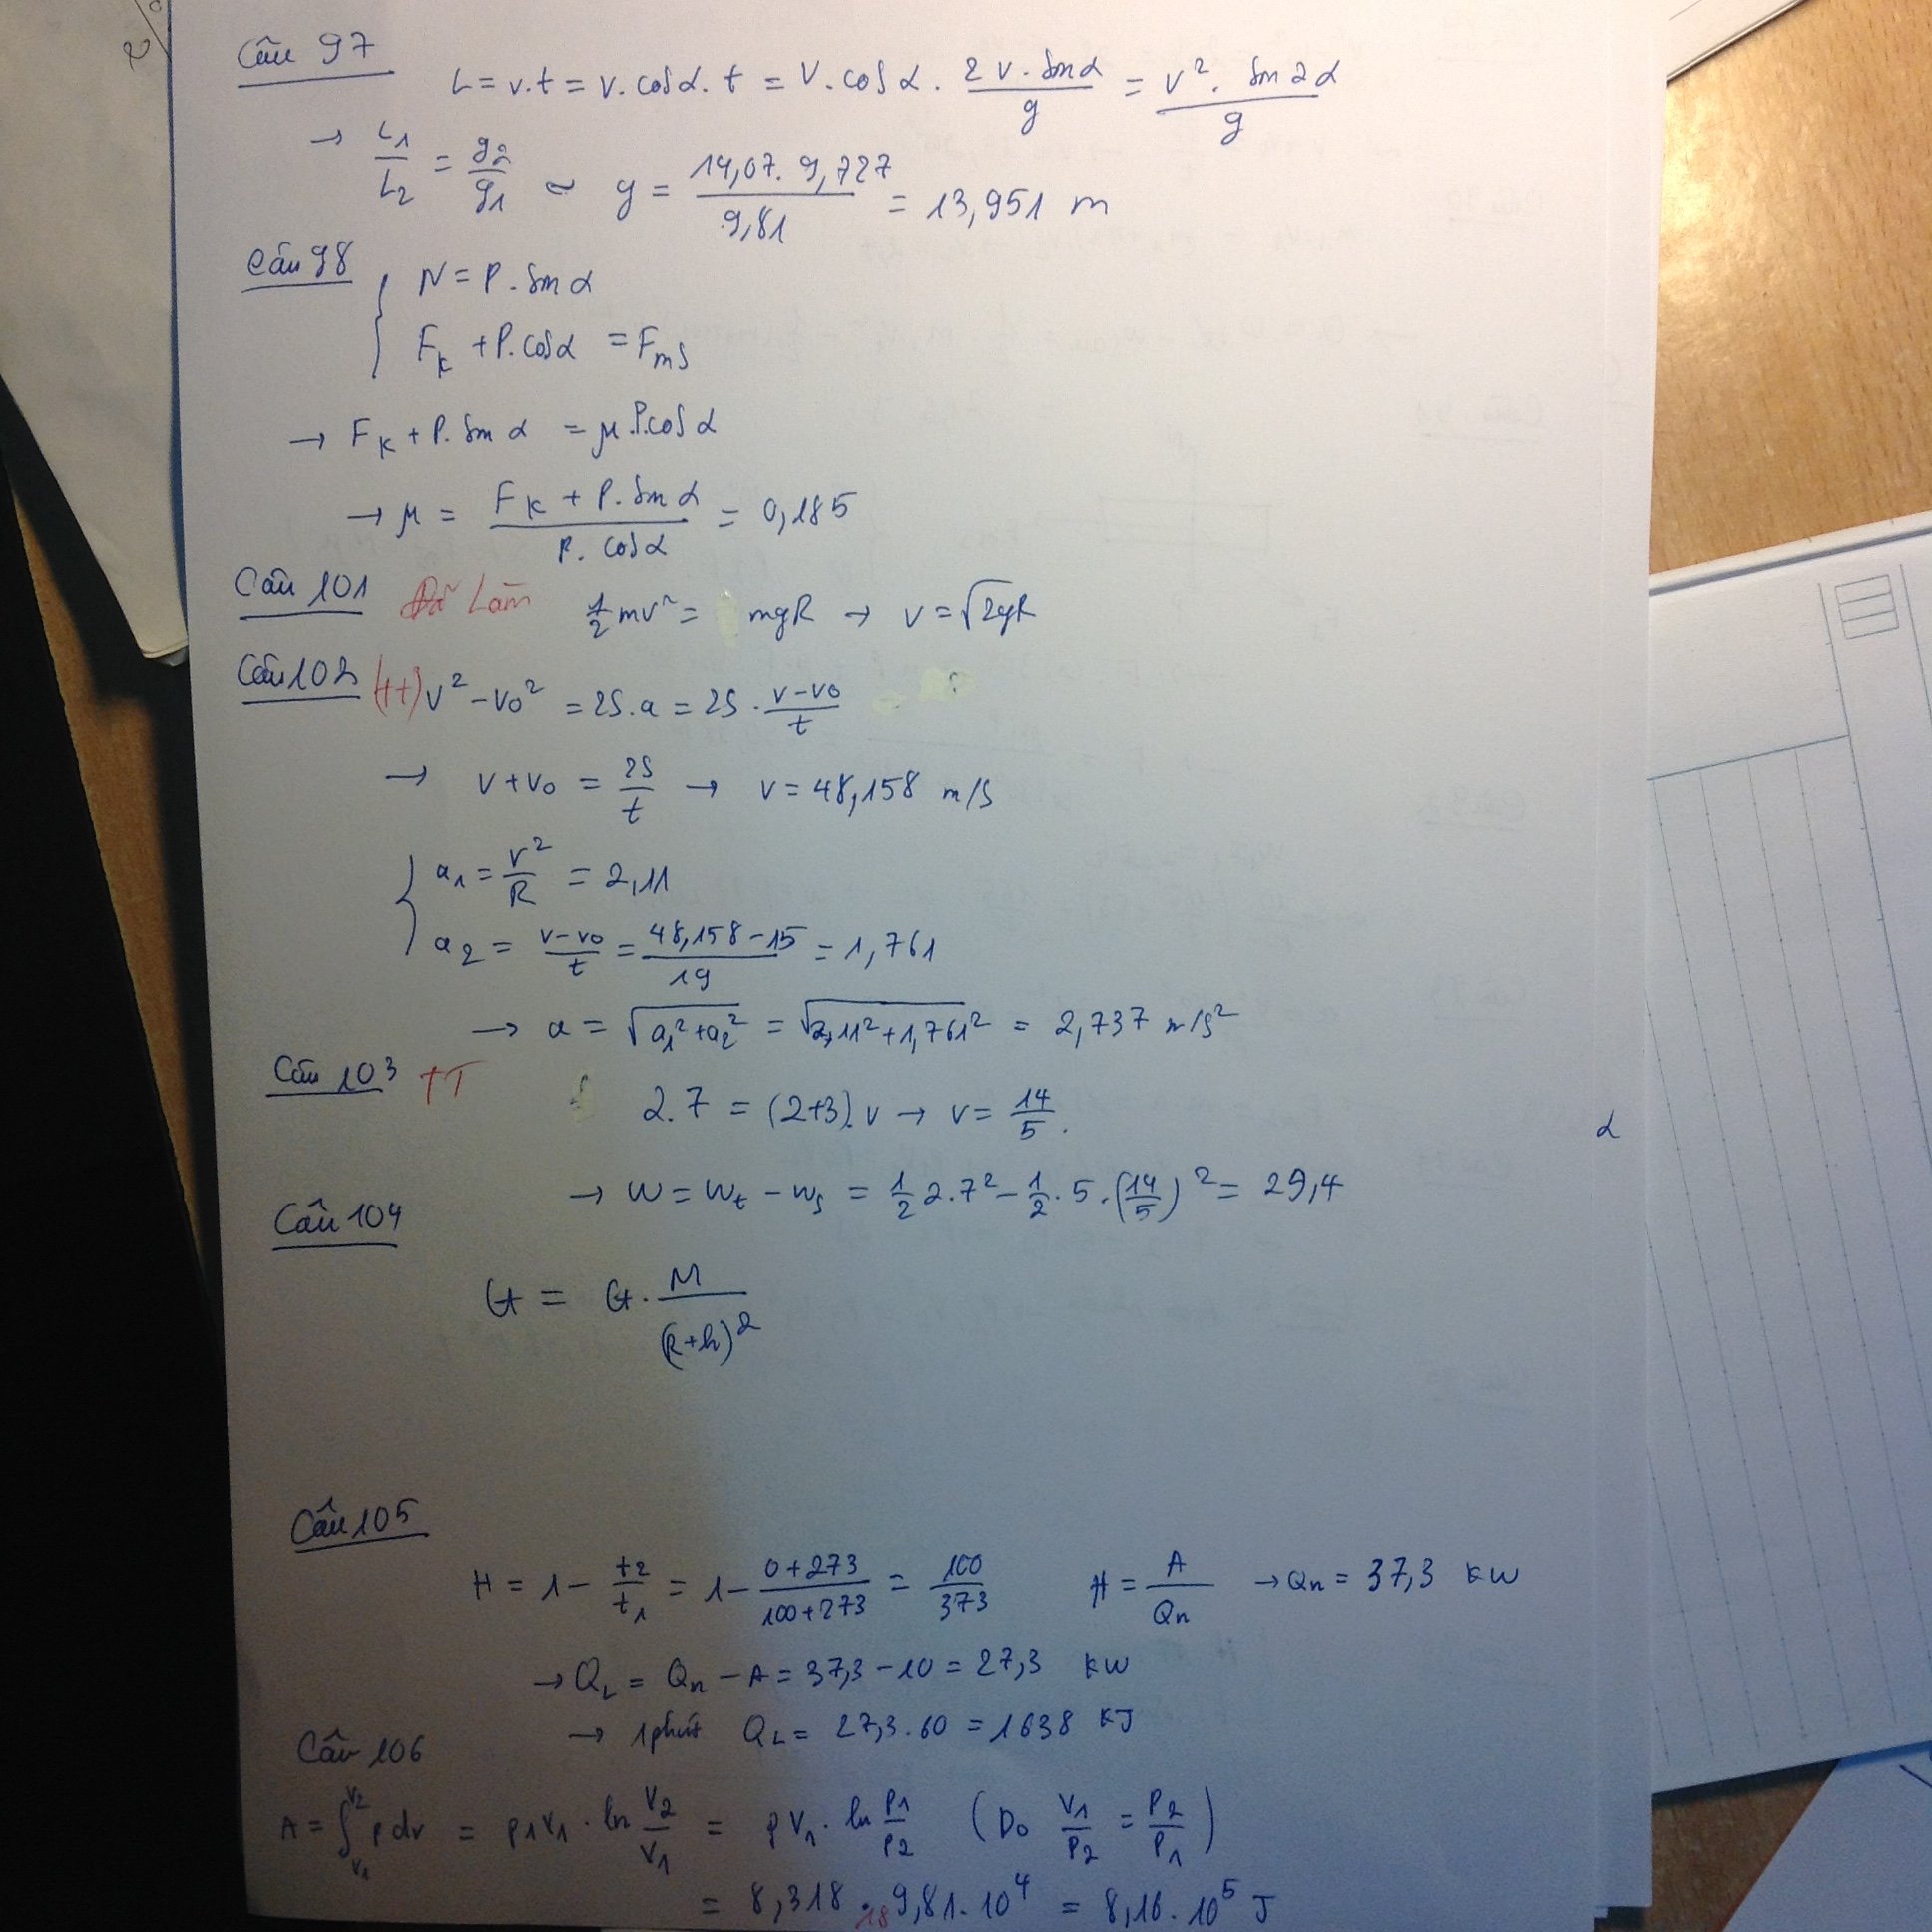 Câu 97
L = v.t = v.cosα.t = V.cosα. 2v.sinα/g = v². sin2α/g
→ L1/L2 = g2/g1 ~ y = 14,07. 9,727/9,81 = 13,951 m
Câu 98
{ N = P.sinα
F_k + P.cosα = F_ms
→ F_k + P.sinα = μ.P.cosα
→ μ = F_k + P.sinα/P.cosα = 0,185
Câu 101 Đã Làm 1/2 mv² = mgR → v = √2gR
Câu 102 (tt) v² - v0² = 2S.a = 2S. v-v0/t
→ v + v0 = 2S/t → v = 48,158 m/s
{ a1 = v²/R = 2,11
a2 = v-v0/t = 48,158-15/19 = 1,761
→ a = √a1²+a2² = √2,11²+1,761² = 2,737 m/s²
Câu 103 TT 2.7 = (2+3).v → v = 14/5.
α
→ W = W_t - W_s = 1/2 2.7² - 1/2.5.(14/5)² = 29,4
Câu 104
G = G. M/(R+h)²
Câu 105
H = 1 - t2/t1 = 1 - 0+273/100+273 = 100/373 H = A/Qn → Qn = 37,3 kW
→ Q_L = Qn - A = 37,3 - 10 = 27,3 kW
→ 1 phút Q_L = 27,3.60 = 1638 KJ
Câu 106
A = ∫_v1^v2 p dv = p1v1.ln V2/V1 = pV1.ln P1/P2 (Do V1/P2 = P2/P1)
= 8,318 .18 9,81.10⁴ = 8,16.10⁵ J